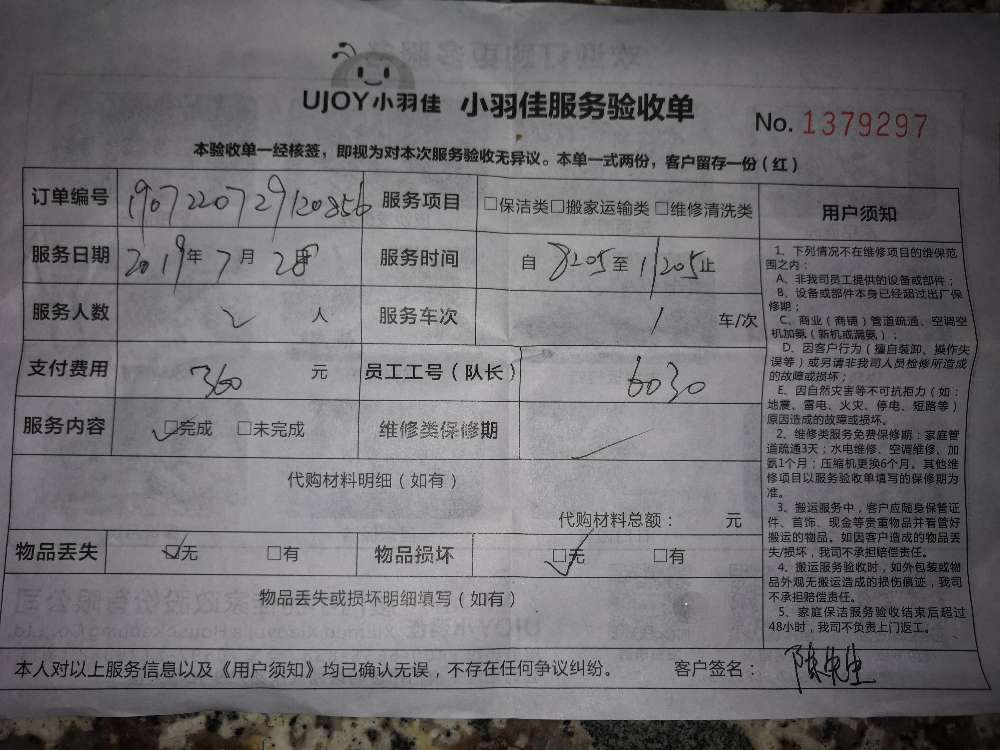 UJOY小羽佳 小羽佳服务验收单
No. 1379297
本验收单一经核签，即视为对本次服务验收无异议。本单一式两份，客户留存一份（红）
订单编号 1907220729120856 服务项目 □保洁类□搬家运输类 □维修清洗类
服务日期 2019年7月28日 服务时间 自 8205至 11205止
服务人数 2 人 服务车次 1 车/次
支付费用 360 元 员工工号（队长） 6030
服务内容 ☑完成 □未完成 维修类保修期
代购材料明细（如有）
代购材料总额： 元
物品丢失 ☑无 □有 物品损坏 ☑无 □有
物品丢失或损坏明细填写（如有）
用户须知
1、下列情况不在维修项目的维保范
围之内：
A、非我司员工提供的设备或部件；
B、设备或部件本身已经超过出厂保
修期；
C、商业（商铺）管道疏通、空调空
机加氨（新机或漏氨）；
D、因客户行为（擅自装卸、操作失
误等）或另请非我司人员检修所造成
的故障或损坏；
E、因自然灾害等不可抗拒力（如：
地震、雷电、火灾、停电、短路等）
原因造成的故障或损坏。
2、维修类服务免费保修期：家庭管
道疏通3天；水电维修、空调维修、加
氨1个月；压缩机更换6个月。其他维
修项目以服务验收单填写的保修期为
准。
3、搬运服务中，客户应随身保管证
件、首饰、现金等贵重物品并看管好
搬运的物品。如因客户造成的物品丢
失/损坏，我司不承担赔偿责任。
4、搬运服务验收时，如外包装或物
品外观无搬运造成的损伤痕迹，我司
不承担赔偿责任。
5、家庭保洁服务验收结束后超过
48小时，我司不负责上门返工。
本人对以上服务信息以及《用户须知》均已确认无误，不存在任何争议纠纷。 客户签名： 陈先生